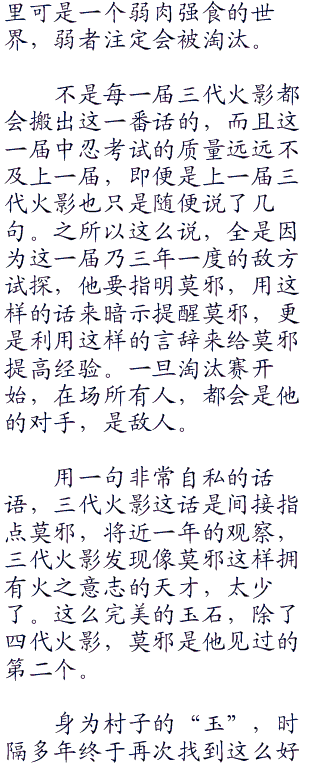 里可是一个弱肉强食的世
界，弱者注定会被淘汰。
不是每一届三代火影都
会搬出这一番话的，而且这
一届中忍考试的质量远远不
及上一届，即便是上一届三
代火影也只是随便说了几
句。之所以这么说，全是因
为这一届乃三年一度的敌方
试探，他要指明莫邪，用这
样的话来暗示提醒莫邪，更
是利用这样的言辞来给莫邪
提高经验。一旦淘汰赛开
始，在场所有人，都会是他
的对手，是敌人。
用一句非常自私的话
语，三代火影这话是间接指
点莫邪，将近一年的观察，
三代火影发现像莫邪这样拥
有火之意志的天才，太少
了。这么完美的玉石，除了
四代火影，莫邪是他见过的
第二个。
身为村子的“玉”，时
隔多年终于再次找到这么好